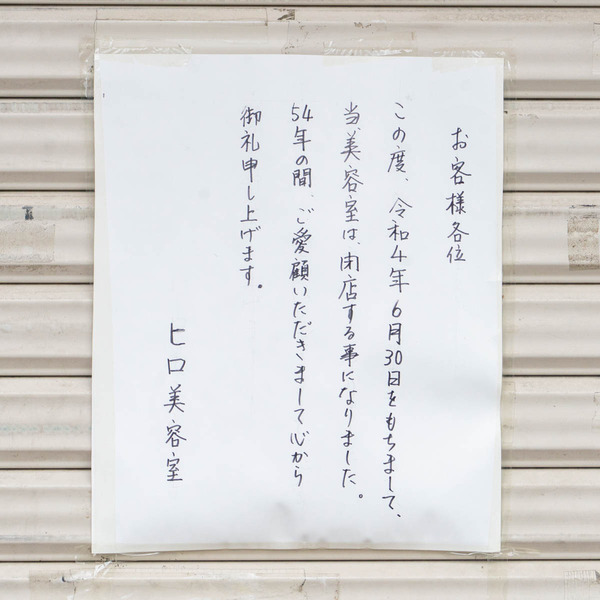 お客様各位
この度、令和4年6月30日をもちまして、
当美容室は、閉店する事になりました。
54年の間、ご愛顧いただきまして心から
御礼申し上げます。
ヒロ美容室